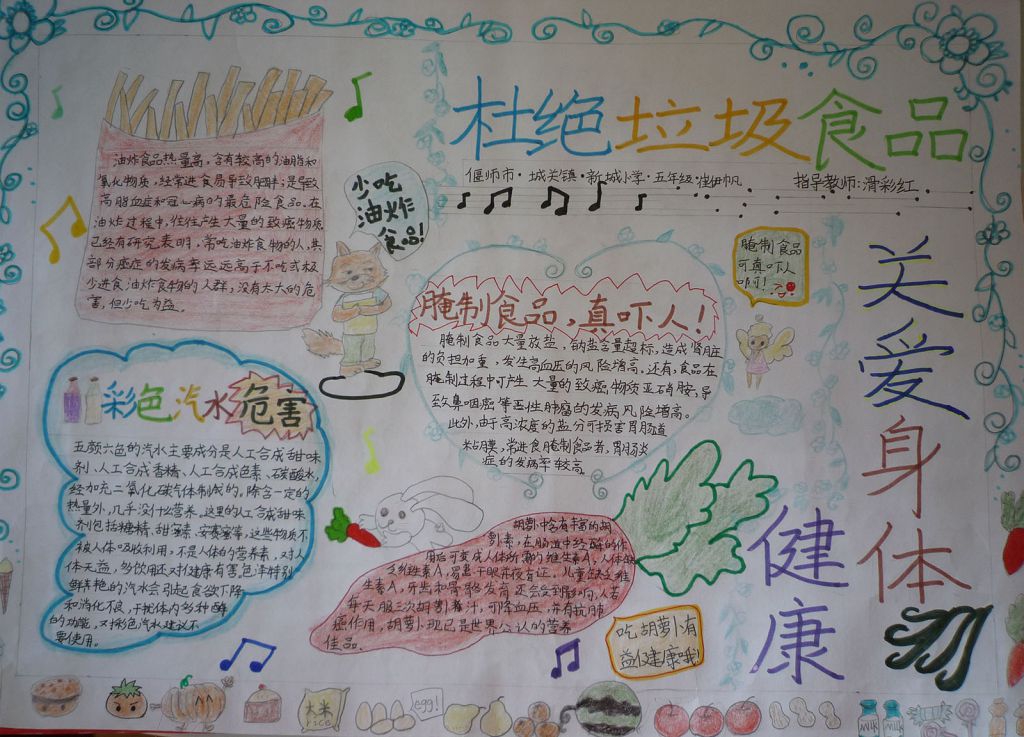 杜绝垃圾食品
偃师市·城关镇·新城小学·五年级·崔伊帆
指导教师:滑彩红
油炸食品热量高,含有较高的油脂和
氧化物质,经常进食易导致肥胖;是导致
高脂血症和冠心病的最危险食品。在
油炸过程中,往往产生大量的致癌物质
已经有研究表明,常吃油炸食物的人,其
部分癌症的发病率远远高于不吃或极
少进食油炸食物的人群,没有太大的危
害,但少吃为益。
少吃
油炸
食品!
腌制食品
可真吓人
啊!
腌制食品,真吓人!
腌制食品大量放盐,的钠盐含量超标,造成肾脏
的负担加重,发生高血压的风险增高。还有,食品在
腌制过程中可产生大量的致癌物质亚硝胺,导
致鼻咽癌等恶性肿瘤的发病风险增高。
此外,由于高浓度的盐分可损害胃肠道
粘膜,常进食腌制食品者,胃肠炎
症的发病率较高。
关爱身体
健康
彩色汽水危害
五颜六色的汽水主要成分是人工合成甜味
剂、人工合成香精、人工合成色素、碳酸水,
经加充二氧化碳气体制成的。除含一定的
热量外,几乎没什么营养。这里的人工合成甜味
剂包括糖精、甜蜜素、安赛蜜等,这些物质不
被人体吸收利用,不是人体的营养素,对人
体无益,多饮用还对健康有害。色泽特别
鲜艳的汽水会引起食欲下降
和消化不良,干扰体内多种酶
的功能,对彩色汽水建议不
要使用。
胡萝卜中含有丰富的胡
萝卜素,在肠道中经酶的作
用后可变成人体所需的维生素A,人体缺
乏维生素A,易患干眼
生素A,牙齿和骨骼发育还会受到影响,人若
每天服三次胡萝卜汁,可降血压,并有抗肺
癌作用,胡萝卜现已是世界公认的营养
佳品。
吃胡萝卜有
益健康哦!
大米
rice
egg!
milk
milk